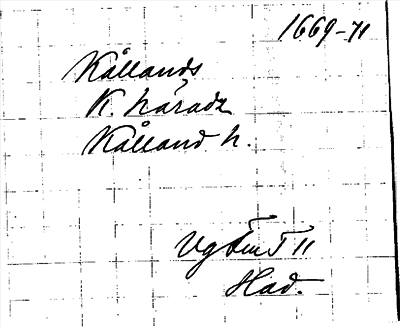 1669-71
Kållands
K. härads
Kålland h.
Vg T 11
Had.